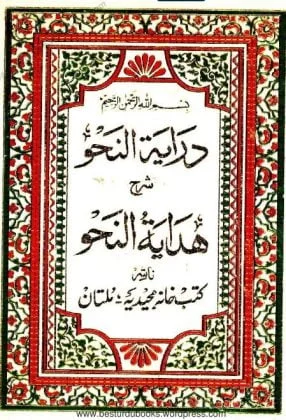 بسم الله الرحمن الرحيم
دراية النحو
شرح
هداية النحو
ناشر
كتب خانہ مجیدیہ ، ملتان
www.besturdubooks.wordpress.com